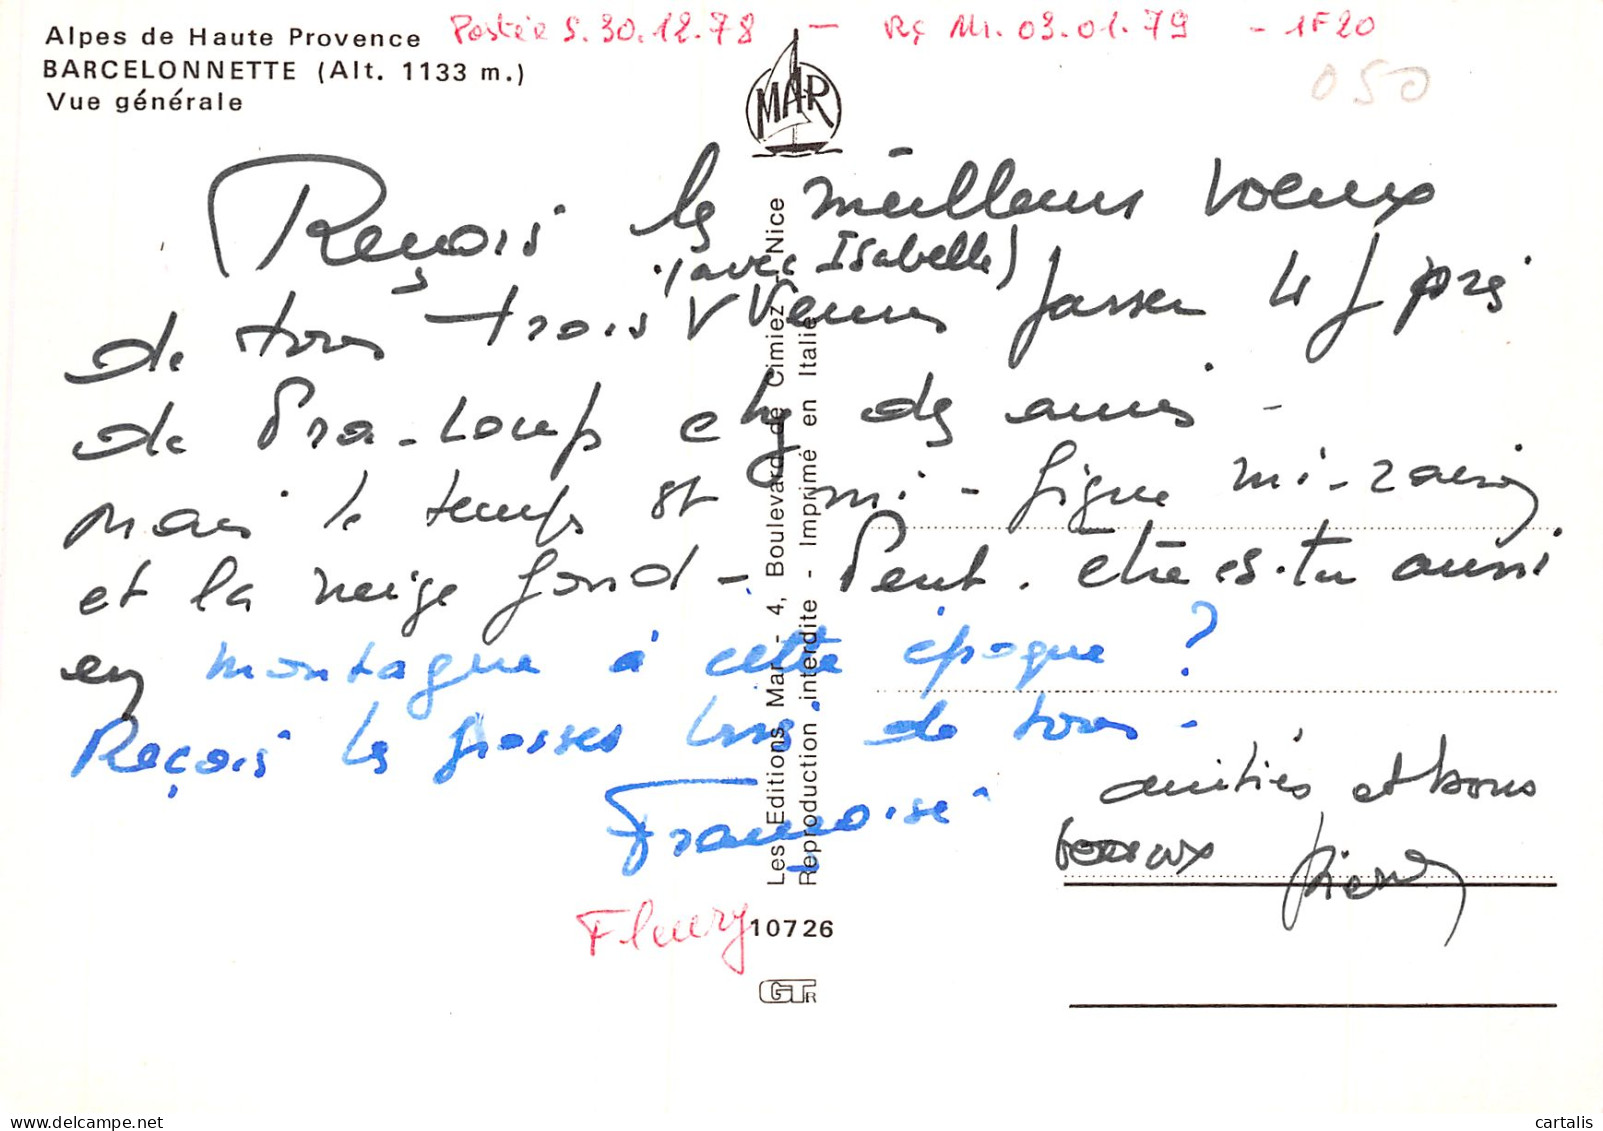 Postée S. 30.12.78 — Rç Mr. 03.01.79 - 1F20
Alpes de Haute Provence
BARCELONNETTE (Alt. 1133 m.)
Vue générale
050
MAR
Reçois les meilleurs voeux
(avec Isabelle)
de tous trois Venus passer 4 j près
de Pra-Loup chez des amis -
Mais le temps est mi-figue mi-raisin
et la neige fond - Peut-être es-tu aussi
en montagne à cette époque ?
Reçois les grosses bises de tous -
Françoise
amitiés et bons
baisers
Pierre
Fleury
10726
GTR
Les Editions Mar - 4, Boulevard de Cimiez - Nice
Reproduction interdite - Imprimé en Italie
cartalis